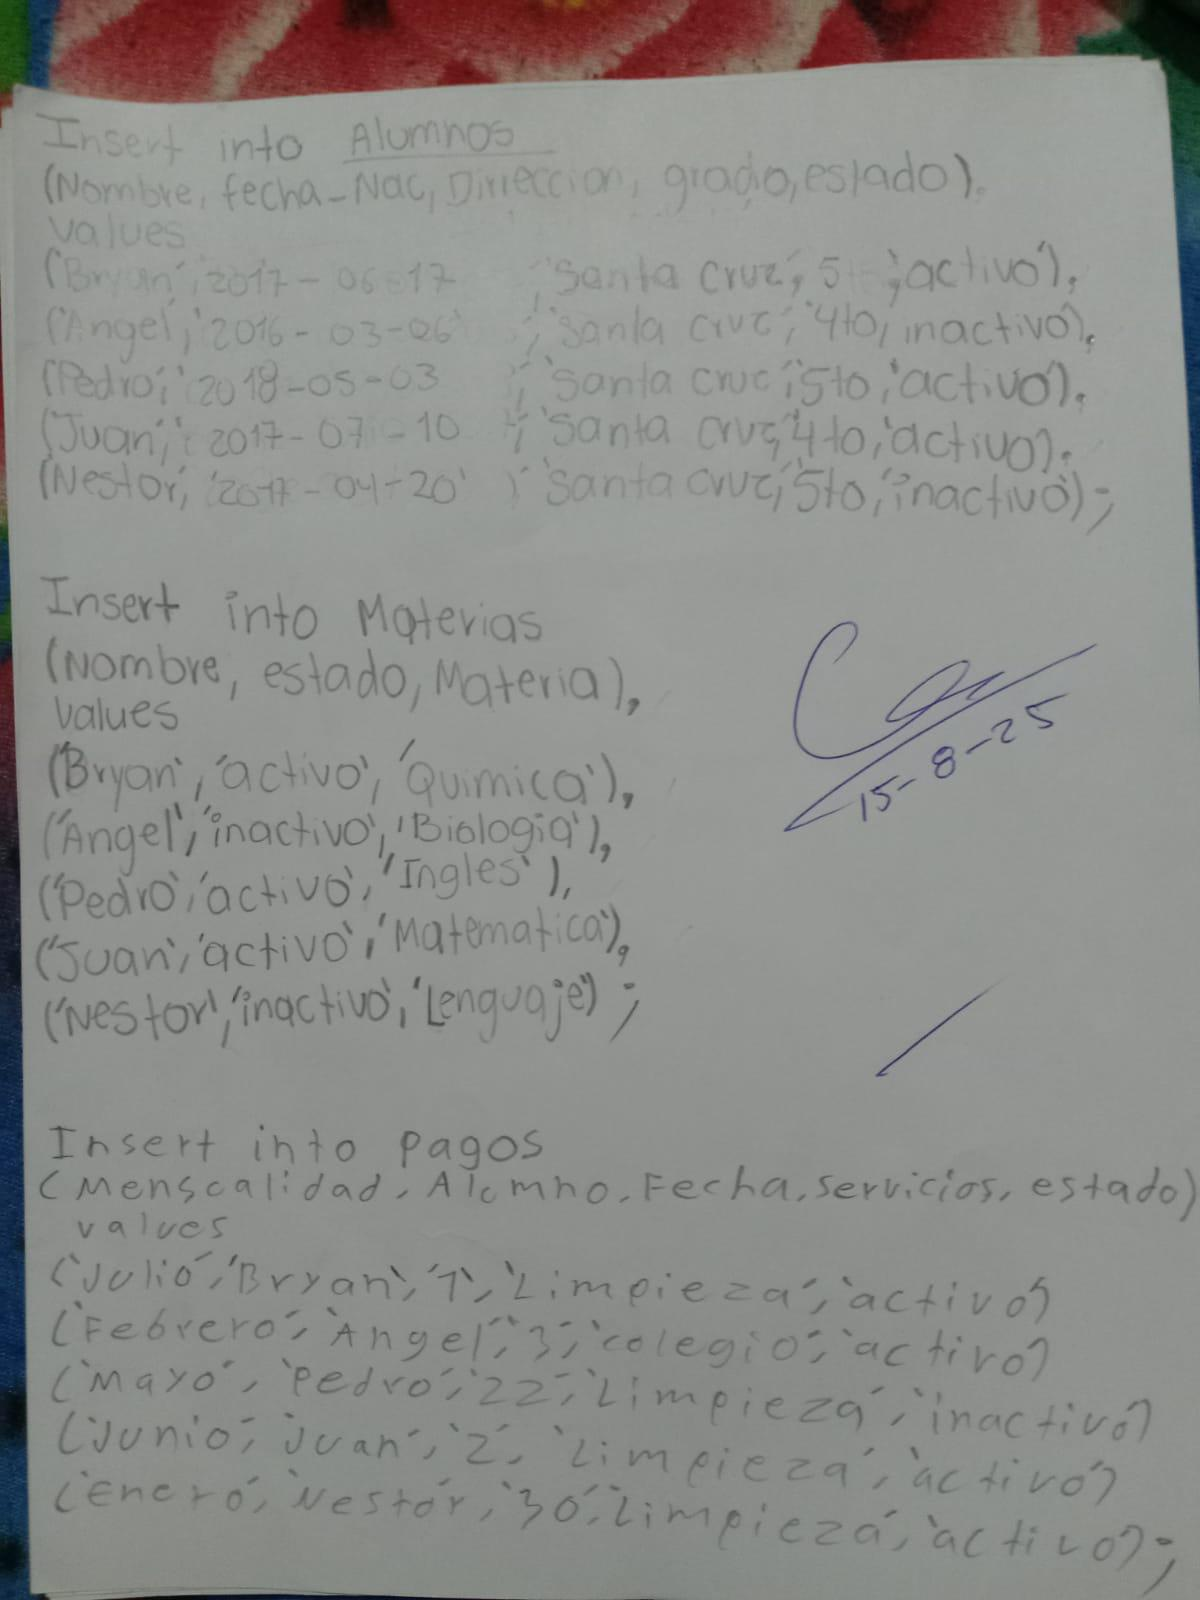 Insert into Alumnos
(Nombre, fecha-Nac, Dirreccion, grado, estado),
values
('Bryan', '2017-06-17 ', 'Santa cruz', 5 ', 'activo'),
('Angel', '2016-03-06' , 'Santa cruz', '4to, inactivo'),
('Pedro', '2018-05-03 ', 'Santa cruz', '5to, 'activo'),
('Juan', '2017-07-10 ', 'Santa cruz, '4to, 'activo'),
('Nestor, '2017-04-20' , 'Santa cruz, '5to, 'inactivo');
Insert into Materias
(Nombre, estado, Materia),
values
('Bryan', 'activo', 'Quimica'),
('Angel', 'inactivo', 'Biologia'),
('Pedro', 'activo', 'Ingles'),
('Juan', 'activo', 'Matematica'),
('Nestor', 'inactivo', 'Lenguaje');
15-8-25
Insert into pagos
(Menscalidad, Alcmno, Fecha, servicios, estado)
values
('Julio', 'Bryan', '7', 'Limpieza', 'activo')
('Febrero', 'Angel', '3', 'colegio', 'activo')
('Mayo', 'Pedro', '22', 'Limpieza', 'inactivo')
('Junio', 'Juan', '2', 'Limpieza', 'activo')
('Enero', 'Nestor', '30', 'Limpieza', 'activo');